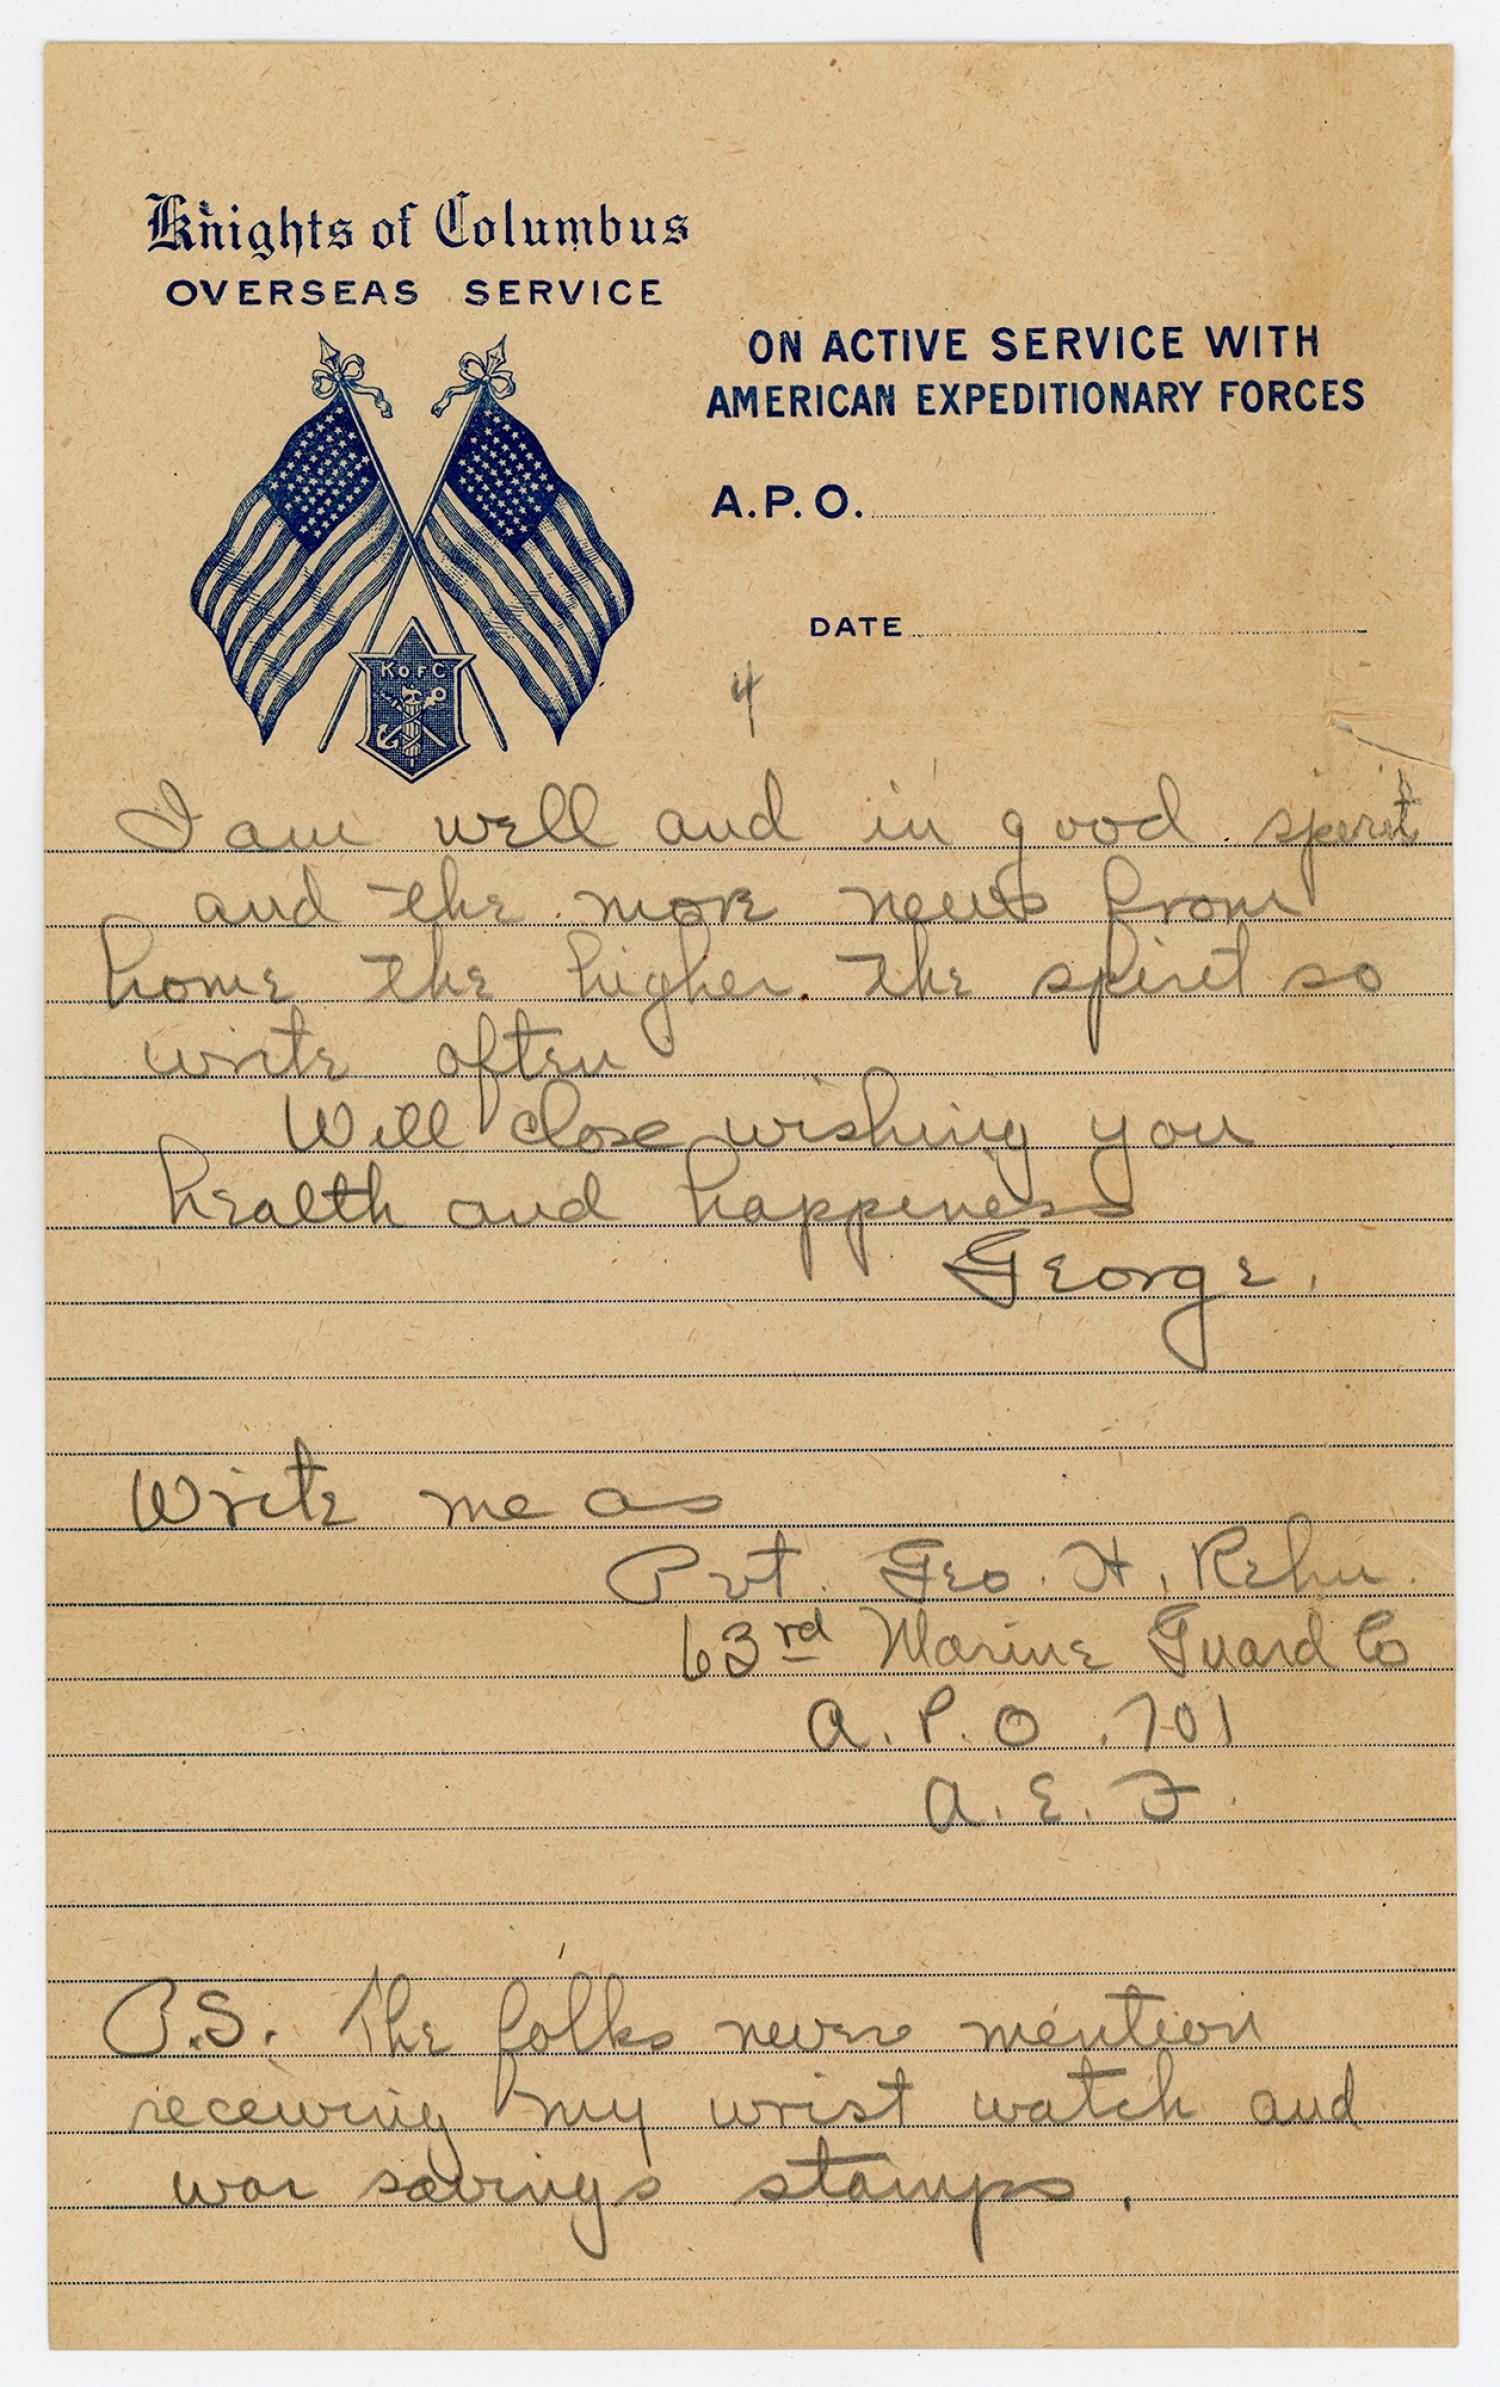 Knights of Columbus
OVERSEAS SERVICE
ON ACTIVE SERVICE WITH
AMERICAN EXPEDITIONARY FORCES
A.P.O.
DATE
K of C
4
I am well and in good spirit
and the more news from
home the higher the spirit so
write often
Will close wishing you
health and happiness
George.
Write me as
Pvt. Geo. H. Rehm.
63rd Marine Guard Co
A.P.O. 701
A.E.F.
P.S. The folks never mention
receiving my wrist watch and
war savings stamps.